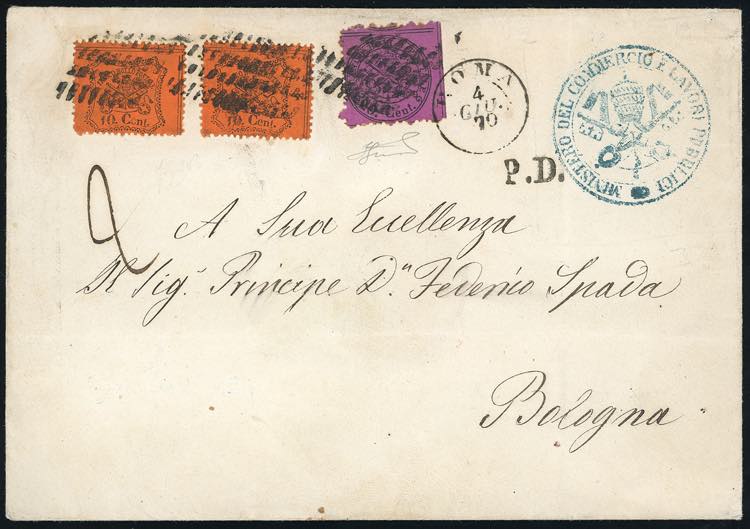 10. Cent.
10. Cent.
Cent.
ROMA
4
GIU.
70
P.D.
MINISTERO DEL COMMERCIO E LAVORI PUBBLICI
A Sua Eccellenza
Il Sig.r Principe D.n Federico Spada
Bologna